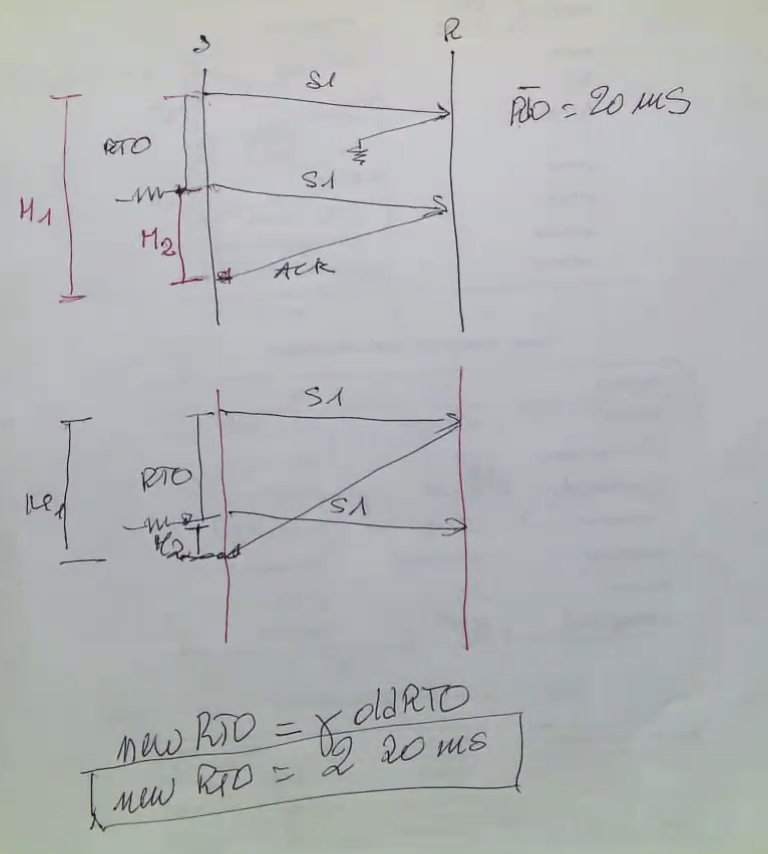 S R
S1
RTO = 20 mS
RTO
S1
M1
M2
ACK
S1
RTO
M1
S1
M2
new RTO = γ old RTO
new RTO = 2 20 ms